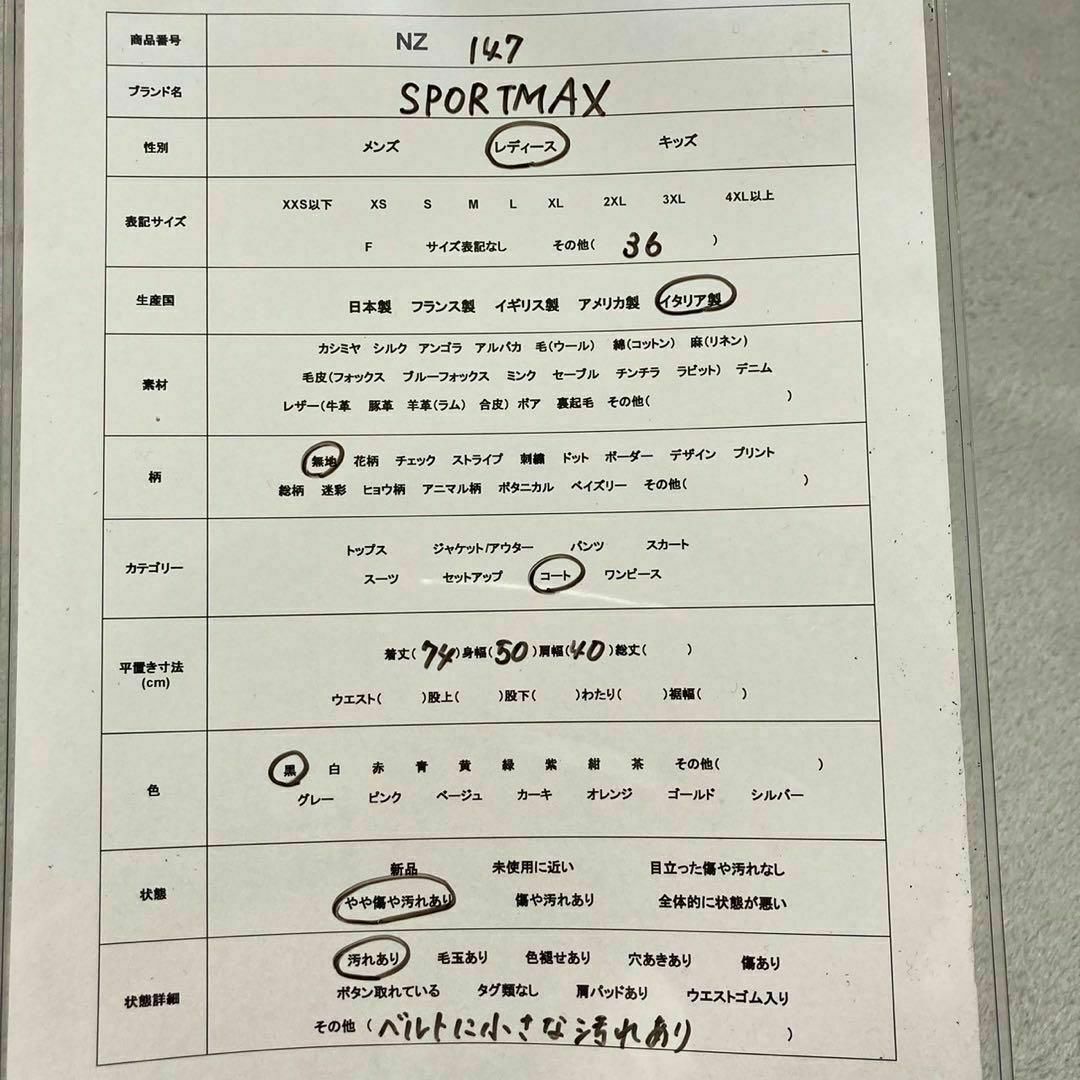 商品番号 NZ 147
ブランド名 SPORTMAX
性別 メンズ レディース キッズ
表記サイズ
XXS以下 XS S M L XL 2XL 3XL 4XL以上
F サイズ表記なし その他( 36 )
生産国 日本製 フランス製 イギリス製 アメリカ製 イタリア製
素材
カシミヤ シルク アンゴラ アルパカ 毛(ウール) 綿(コットン) 麻(リネン)
毛皮(フォックス ブルーフォックス ミンク セーブル チンチラ ラビット) デニム
レザー(牛革 豚革 羊革(ラム) 合皮) ボア 裏起毛 その他( )
柄
無地 花柄 チェック ストライプ 刺繍 ドット ボーダー デザイン プリント
総柄 迷彩 ヒョウ柄 アニマル柄 ボタニカル ペイズリー その他( )
カテゴリー
トップス ジャケット/アウター パンツ スカート
スーツ セットアップ コート ワンピース
平置き寸法
(cm)
着丈( 74 )身幅( 50 )肩幅( 40 )総丈( )
ウエスト( )股上( )股下( )わたり( )裾幅( )
色
黒 白 赤 青 黄 緑 紫 紺 茶 その他( )
グレー ピンク ベージュ カーキ オレンジ ゴールド シルバー
状態
新品 未使用に近い 目立った傷や汚れなし
やや傷や汚れあり 傷や汚れあり 全体的に状態が悪い
状態詳細
汚れあり 毛玉あり 色褪せあり 穴あきあり 傷あり
ボタン取れている タグ類なし 肩パッドあり ウエストゴム入り
その他 ( ベルトに小さな汚れあり )